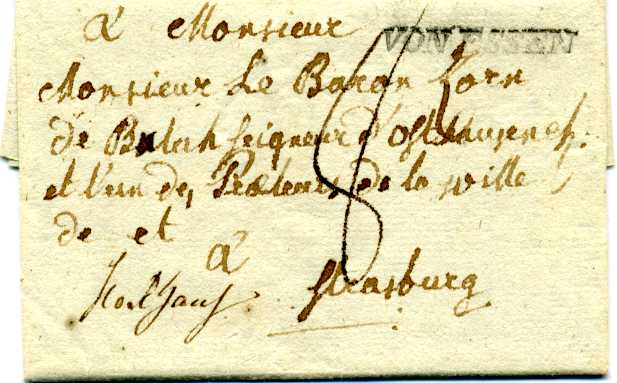 VON ESSEN
à Monsieur
Monsieur Le Baron Zorn
de Bulach Seigneur d'Osthausen
et l'un des Preteurs de la ville
de et
à
Strasburg
8